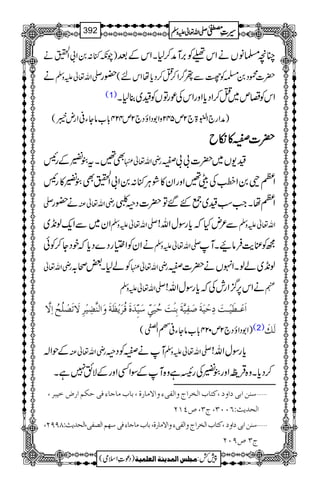 سیرتِ مصطفی صلی اللہ تعالیٰ علیہ وسلم 392
چنانچہ مسلمانوں نے اس کے تھیلے کو برآمد کر لیا۔ اس کے بعد (چونکہ کنانہ ابن ابی الحقیق نے
حضرت محمود بن مسلمہ کو چھت سے پتھر گرا کر قتل کر دیا تھا اس لئے) حضور صلی اللہ تعالیٰ علیہ وسلم نے
اس کو قصاص میں قتل کرا دیا اور اس کی عورتوں کو قیدی بنا لیا۔ (1)
(مدارج النبوۃ ج۲ ص۲۴۵ وابوداؤد ج۲ ص۴۲۴ باب ماجاء فی ارض خیبر)
حضرت صفیہ کا نکاح
قیدیوں میں حضرت بی بی صفیہ رضی اللہ تعالیٰ عنہا بھی تھیں۔ یہ بنو نضیر کے رئیس
اعظم حیی بن اخطب کی بیٹی تھیں اور ان کا شوہر کنانہ بن ابی الحقیق بھی بنو نضیر کا رئیس
اعظم تھا۔ جب سب قیدی جمع کئے گئے تو حضرت دحیہ کلبی رضی اللہ تعالیٰ عنہ نے حضور صلی
اللہ تعالیٰ علیہ وسلم سے عرض کیا کہ یا رسول اللہ! صلی اللہ تعالیٰ علیہ وسلم ان میں سے ایک لونڈی
مجھ کو عنایت فرمائیے۔ آپ صلی اللہ تعالیٰ علیہ وسلم نے ان کو اختیار دے دیا کہ خود جا کر کوئی
لونڈی لے لو۔ انہوں نے حضرت صفیہ رضی اللہ تعالیٰ عنہا کو لے لیا۔ بعض صحابہ رضی اللہ تعالیٰ
عنہم نے اس پر گزارش کی کہ یا رسول اللہ! صلی اللہ تعالیٰ علیہ وسلم
اَعْطَيْتَ دِحْيَةَ صَفِيَّةَ بِنْتَ حُيَيٍّ سَيِّدَةَ قُرَيْظَةَ وَالنَّضِيْرِ لَا تَصْلُحُ اِلَّا
لَكَ (2) (ابوداؤد ج۲ ص۴۲۰ باب ماجاء فی سہم الصفی)
یا رسول اللہ! صلی اللہ تعالیٰ علیہ وسلم آپ نے صفیہ کو دحیہ رضی اللہ تعالیٰ عنہ کے حوالہ
کر دیا۔ وہ قریظہ اور بنو نضیر کی رئیسہ ہے وہ آپ کے سوا کسی اور کے لائق نہیں ہے۔
.....سنن ابی داود ،کتاب الخراج والفیء والامارۃ ، باب ماجاء فی حکم ارض خیبر ،
الحدیث:٣٠٠٦، ج۳، ص ٢١٤
.....سنن ابی داود ،کتاب الخراج والفیء والامارۃ، باب ماجاء فی سھم الصفی،الحدیث:۲۹۹۸،
ج۳ ص ٢٠٩
پیش کش: مجلس المدینۃ العلمیۃ (دعوتِ اسلامی)